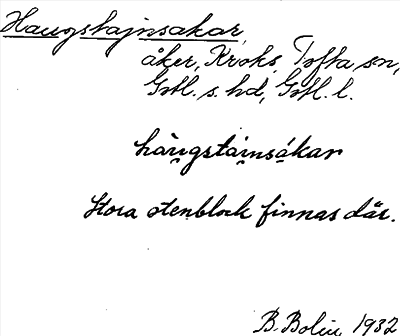 Haugstajnsakar,
åker, Kroks, Tofta sn,
Gotl. s. hd, Gotl. l.
hàu̯gstai̯nsákar
Stora stenblock finnas där.
B. Bolin 1932